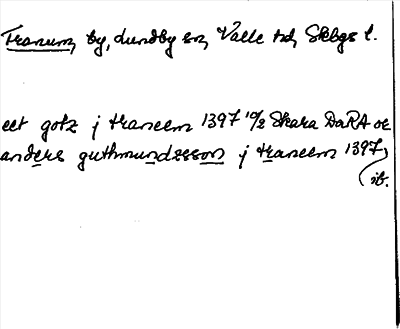 Tranum, by, Lundby sn, Valle hd, Skbgs l.
eet gotz j traneem 1397 10/2 Skara DaRA or
anders guthmundzsson j traneem 1397
ib.